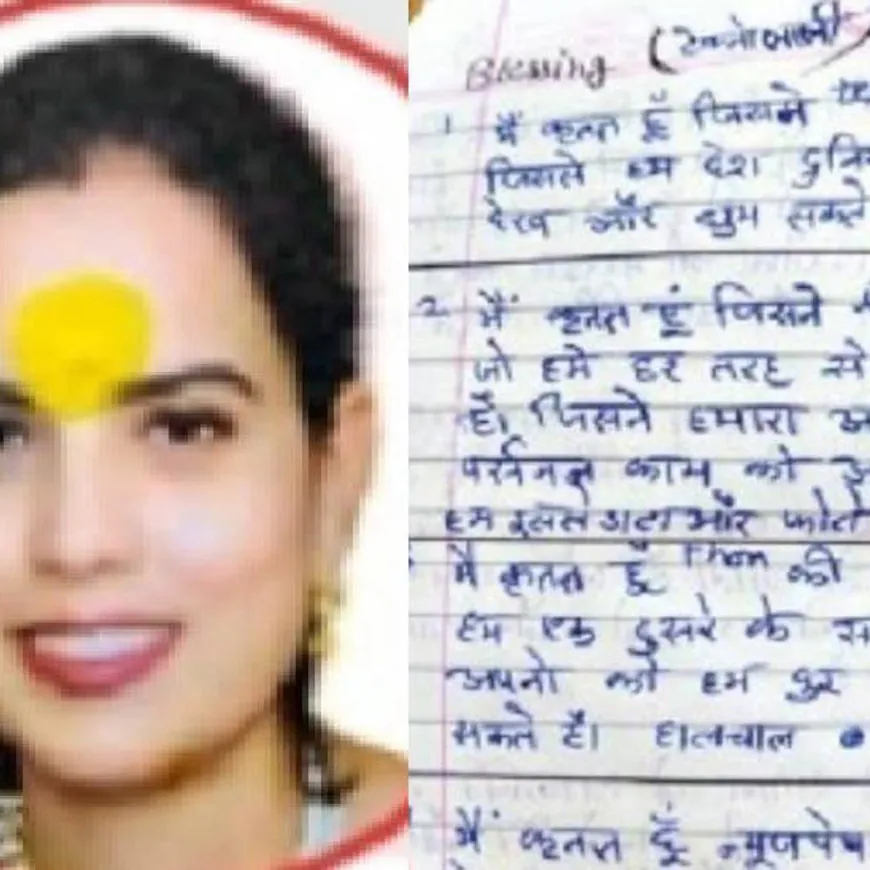 Blessing (टेक्नोलॉजी)
1 मैं कृतज्ञ हूँ जिसने
जिससे हम देश
देख और घुम सकते
2 मैं कृतज्ञ हूं जिसने
जो हमे हर तरह से
है। जिसने हमारा
पर्सनल काम को
हम इससे डाटा और फोटो
मैं कृतज्ञ हूँ Phon की
हम एक दुसरे के
अपनो को हम दुर
सकते है। हालचाल
मैं कृतज्ञ हूँ